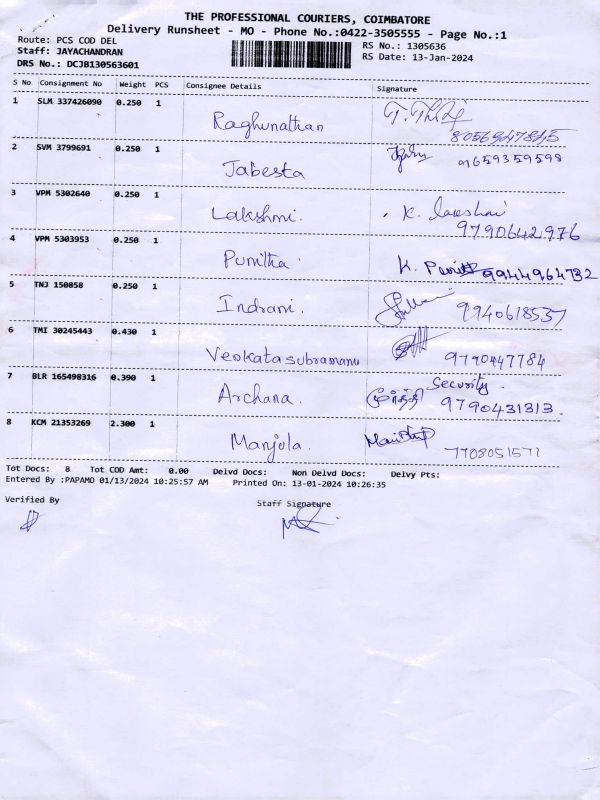 THE PROFESSIONAL COURIERS, COIMBATORE
Delivery Runsheet - MO - Phone No.:0422-3505555 - Page No.:1
Route: PCS COD DEL
Staff: JAYACHANDRAN
DRS No.: DCJB130563601
RS No.: 1305636
RS Date: 13-Jan-2024
S No Consignment No Weight PCS Consignee Details Signature
1 SLM 337426090 0.250 1
Raghunathan 8056947845
2 SVM 3799691 0.250 1
Jabesta 9659359598
3 VPM 5302640 0.250 1
Lakshmi. K. lakshmi
9790642976
4 VPM 5303953 0.250 1
Punitha K. 9944964732
5 TNJ 150858 0.250 1
Indrani. 9940618537
6 TMI 30245443 0.430 1
Venkatasubramani 9790447784
7 BLR 165498316 0.390 1 Security.
Archana. 9790431313.
8 KCM 21353269 2.300 1
Manjula. 7708051571
Tot Docs: 8 Tot COD Amt: 0.00 Delvd Docs: Non Delvd Docs: Delvy Pts:
Entered By :PAPAMO 01/13/2024 10:25:57 AM Printed On: 13-01-2024 10:26:35
Verified By Staff Signature